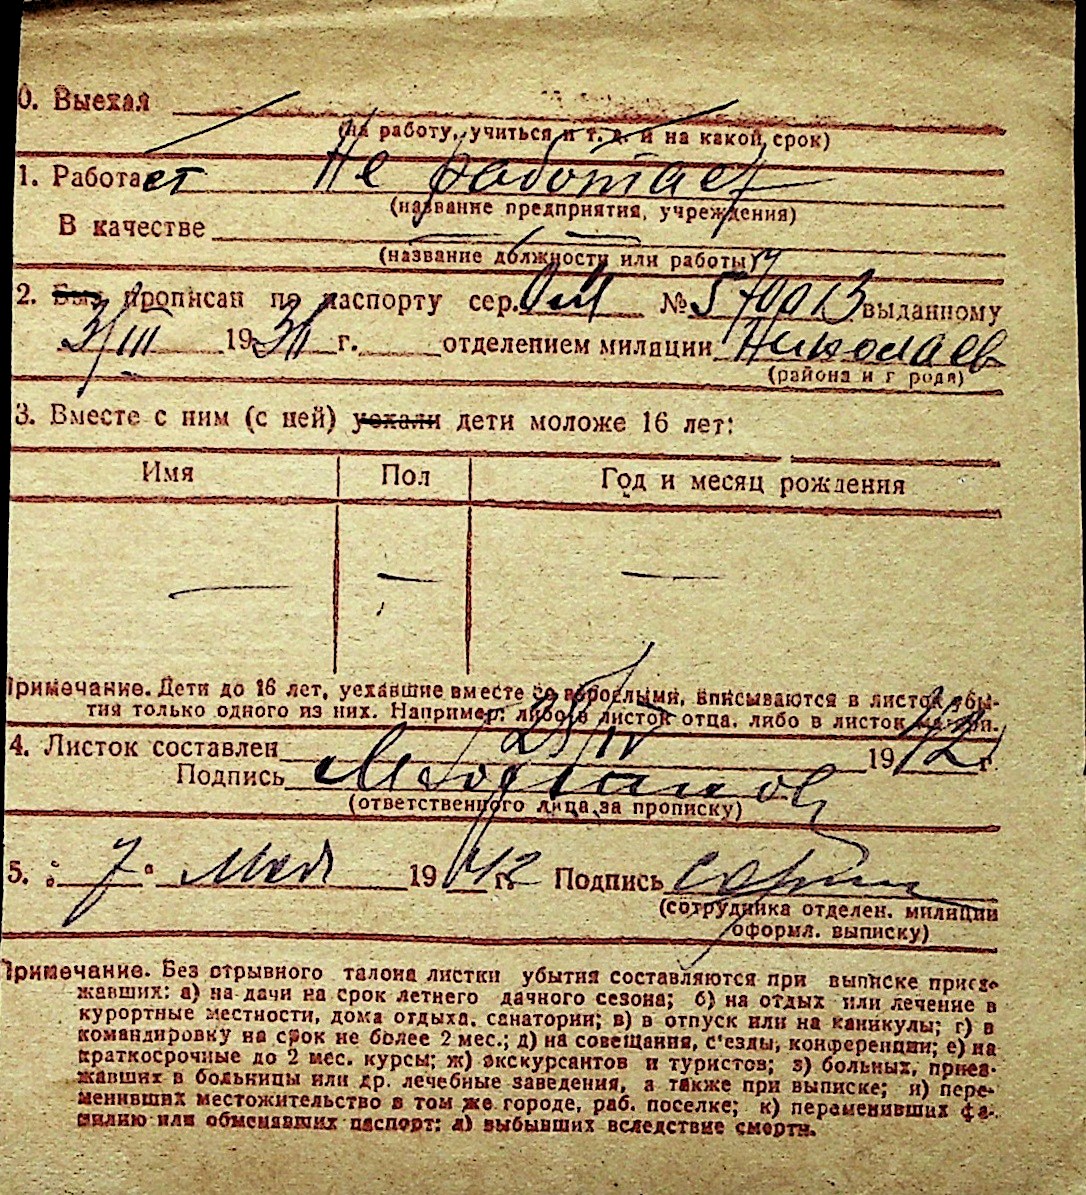 0. Выехал
(на работу, учиться и т. д. и на какой срок)
1. Работает Не работает
(название предприятия, учреждения)
В качестве
(название должности или работы)
2. Был прописан по паспорту сер. № выданному
3/III 19 г. отделением милиции Николаев
(района и г рода)
3. Вместе с ним (с ней) уехали дети моложе 16 лет:
Имя Пол Год и месяц рождения
— — —
Примечание. Дети до 16 лет, уехавшие вместе со взрослыми, вписываются в листок убы-
тия только одного из них. Например: либо в листок отца, либо в листок матери.
4. Листок составлен 25/IV 1942 г.
Подпись
(ответственного лица за прописку)
5. „ 7 “ Мая 1942 г. Подпись
(сотрудника отделен. милиции
оформл. выписку)
Примечание. Без отрывного талона листки убытия составляются при выписке приез-
жавших: а) на дачи на срок летнего дачного сезона; б) на отдых или лечение в
курортные местности, дома отдыха, санатории; в) в отпуск или на каникулы; г) в
командировку на срок не более 2 мес.; д) на совещания, с'езды, конференции; е) на
краткосрочные до 2 мес. курсы; ж) экскурсантов и туристов; з) больных, приез-
жавших в больницы или др. лечебные заведения, а также при выписке; и) пере-
менивших местожительство в том же городе, раб. поселке; к) переменивших фа-
милию или обменявших паспорт; л) выбывших вследствие смерти.